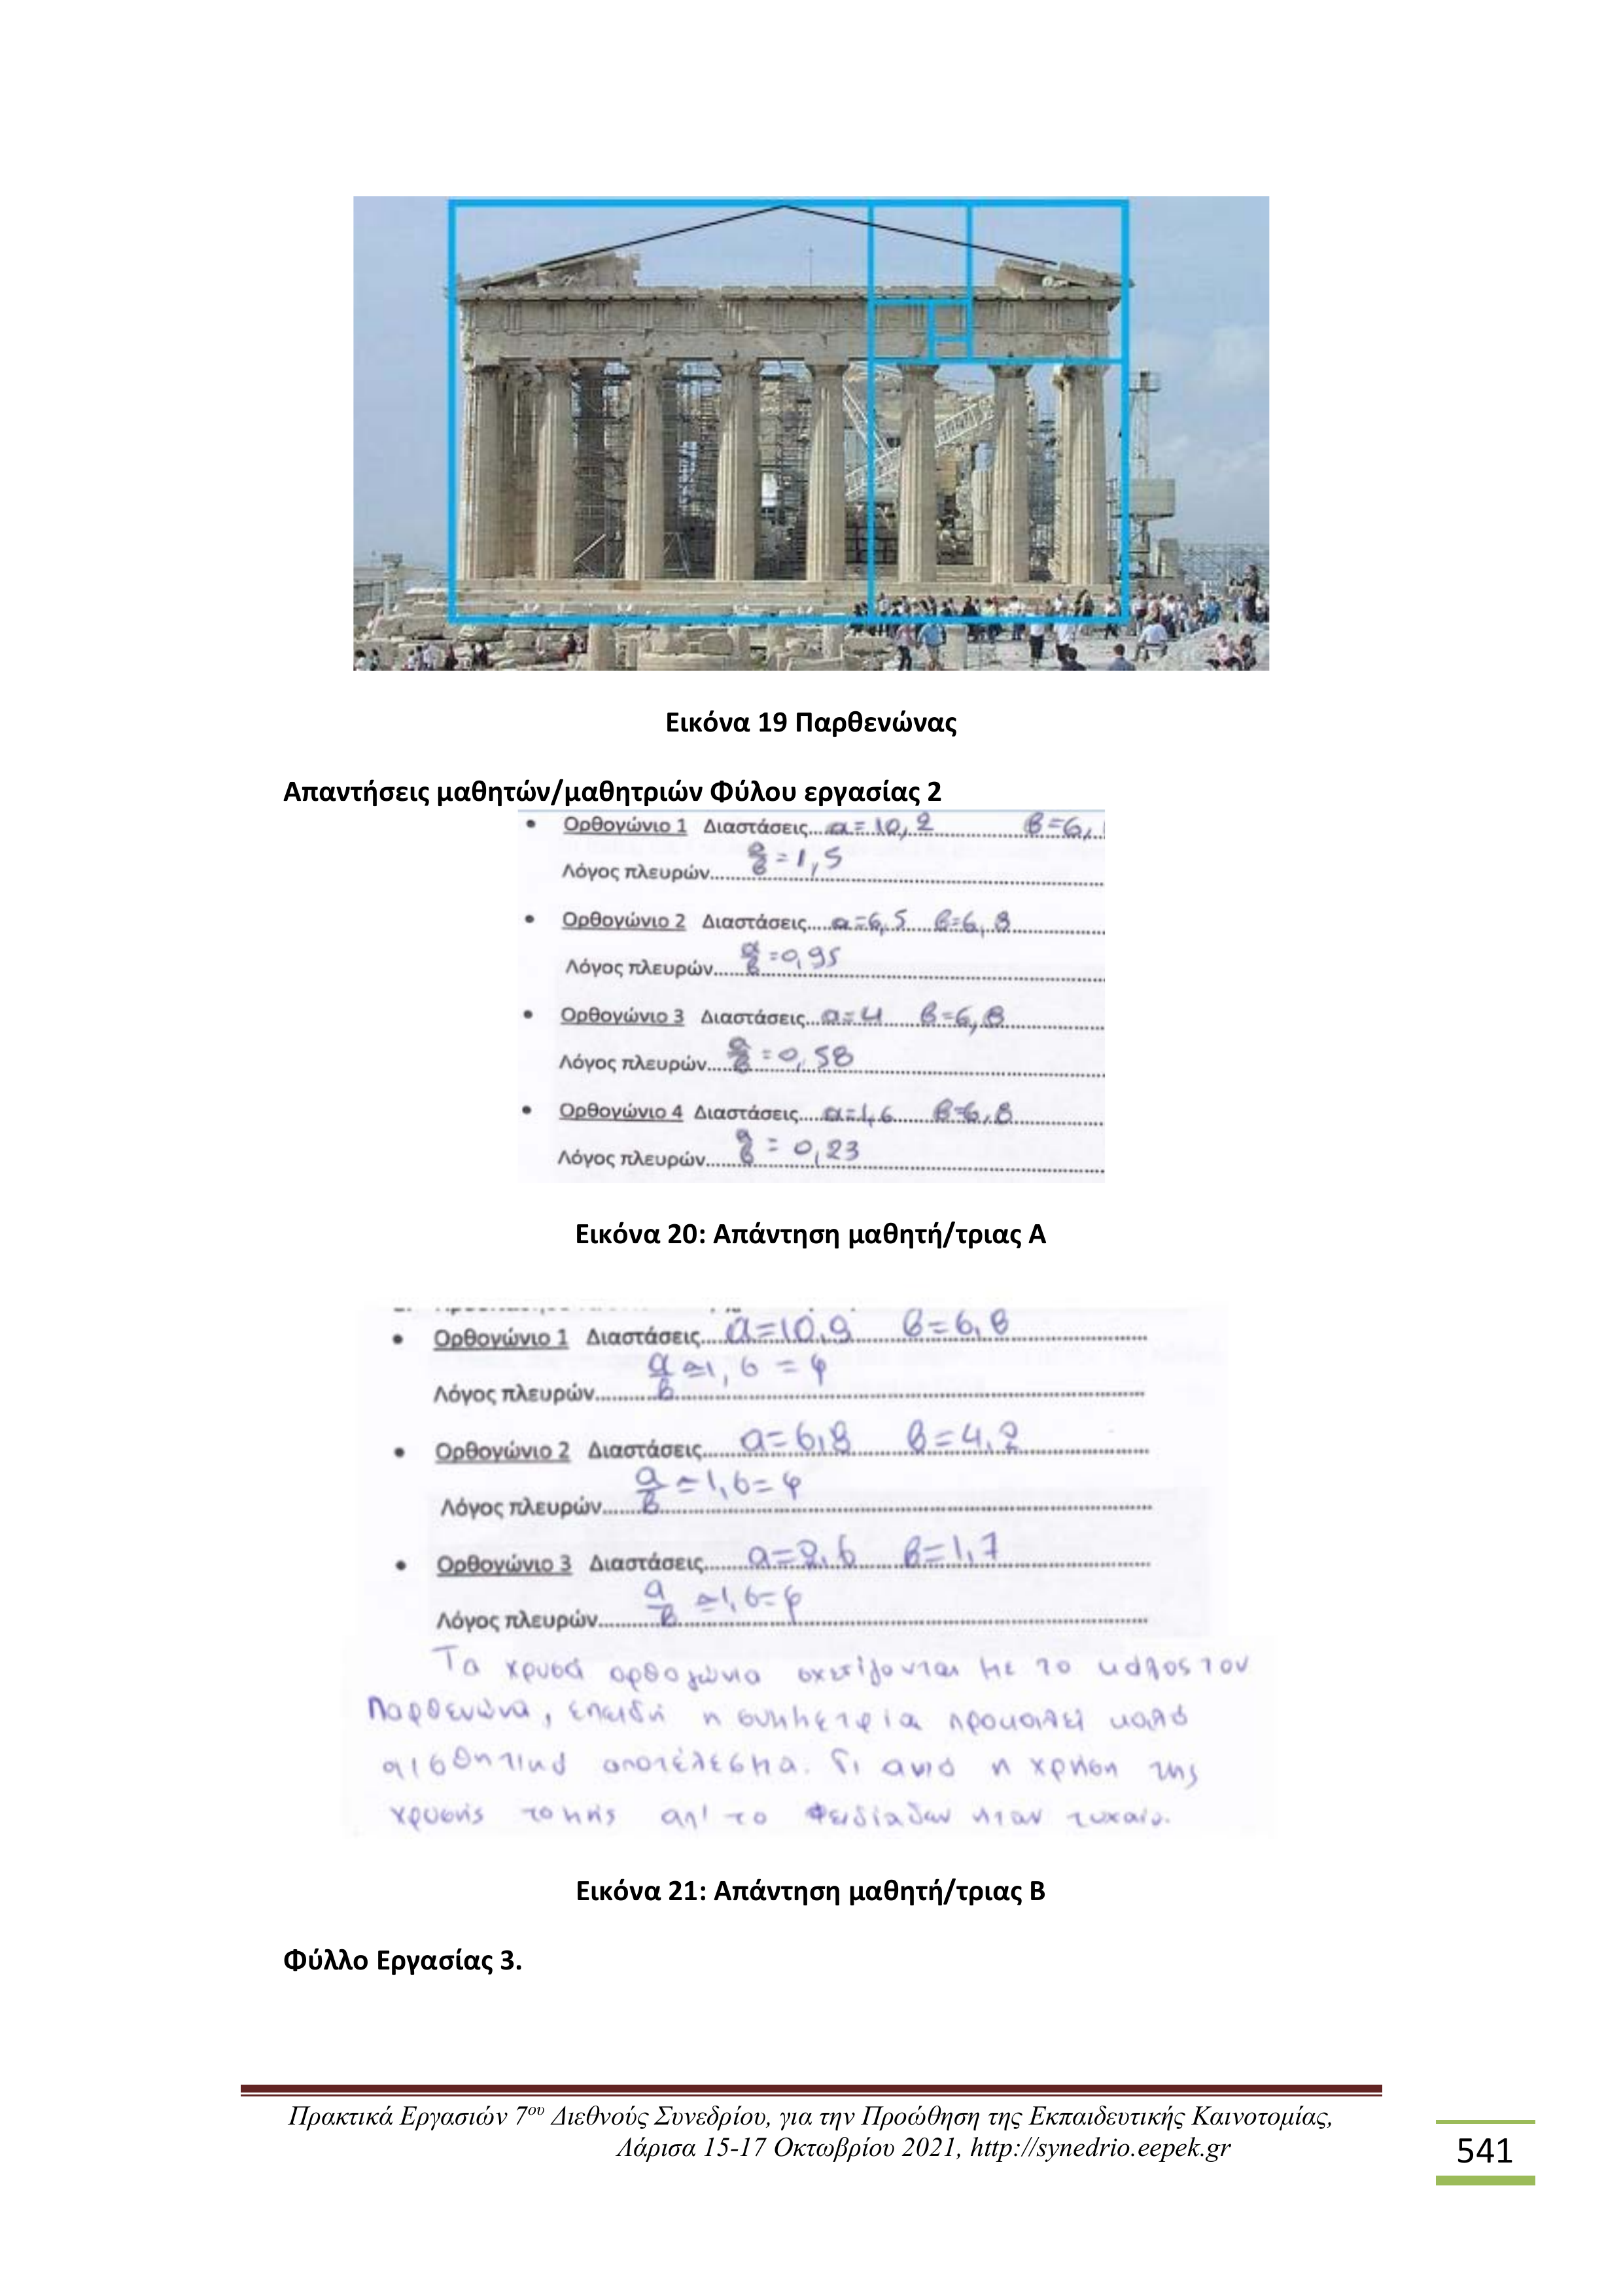 Εικόνα 19 Παρθενώνας
Απαντήσεις μαθητών/μαθητριών Φύλου εργασίας 2
• Ορθογώνιο 1 Διαστάσεις....α=10,2 β=6,
Λόγος πλευρών.... α/β = 1,5
• Ορθογώνιο 2 Διαστάσεις....α=6,5 β=6,8
Λόγος πλευρών.... α/β =0,95
• Ορθογώνιο 3 Διαστάσεις....α=4 β=6,8
Λόγος πλευρών.... α/β =0,58
• Ορθογώνιο 4 Διαστάσεις....α=1,6 β=6,8
Λόγος πλευρών.... α/β = 0,23
Εικόνα 20: Απάντηση μαθητή/τριας Α
• Ορθογώνιο 1 Διαστάσεις....α=10,9 β=6,8
Λόγος πλευρών.... α/β ≃1,6 = φ
• Ορθογώνιο 2 Διαστάσεις....α=6,8 β=4,2
Λόγος πλευρών.... α/β ≃1,6=φ
• Ορθογώνιο 3 Διαστάσεις....α=2,6 β=1,7
Λόγος πλευρών.... α/β ≃1,6=φ
Τα χρυσά ορθογώνια σχετίζονται με το κάλος του
Παρθενώνα, επειδή η συμμετρία προκαλεί καλό
αισθητικό αποτέλεσμα. Γι αυτό η χρήση της
χρυσής τομής απ' το Φειδία δεν ήταν τυχαία.
Εικόνα 21: Απάντηση μαθητή/τριας Β
Φύλλο Εργασίας 3.
Πρακτικά Εργασιών 7ου Διεθνούς Συνεδρίου, για την Προώθηση της Εκπαιδευτικής Καινοτομίας,
Λάρισα 15-17 Οκτωβρίου 2021, http://synedrio.eepek.gr
541